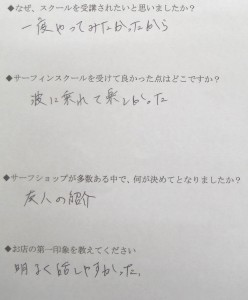 ◆なぜ、スクールを受講されたいと思いましたか？
一度やってみたかったから
◆サーフィンスクールを受けて良かった点はどこですか？
波に乗れて楽しかった
◆サーフショップが多数ある中で、何が決めてとなりましたか？
友人の紹介
◆お店の第一印象を教えてください
明るく話しやすかった。